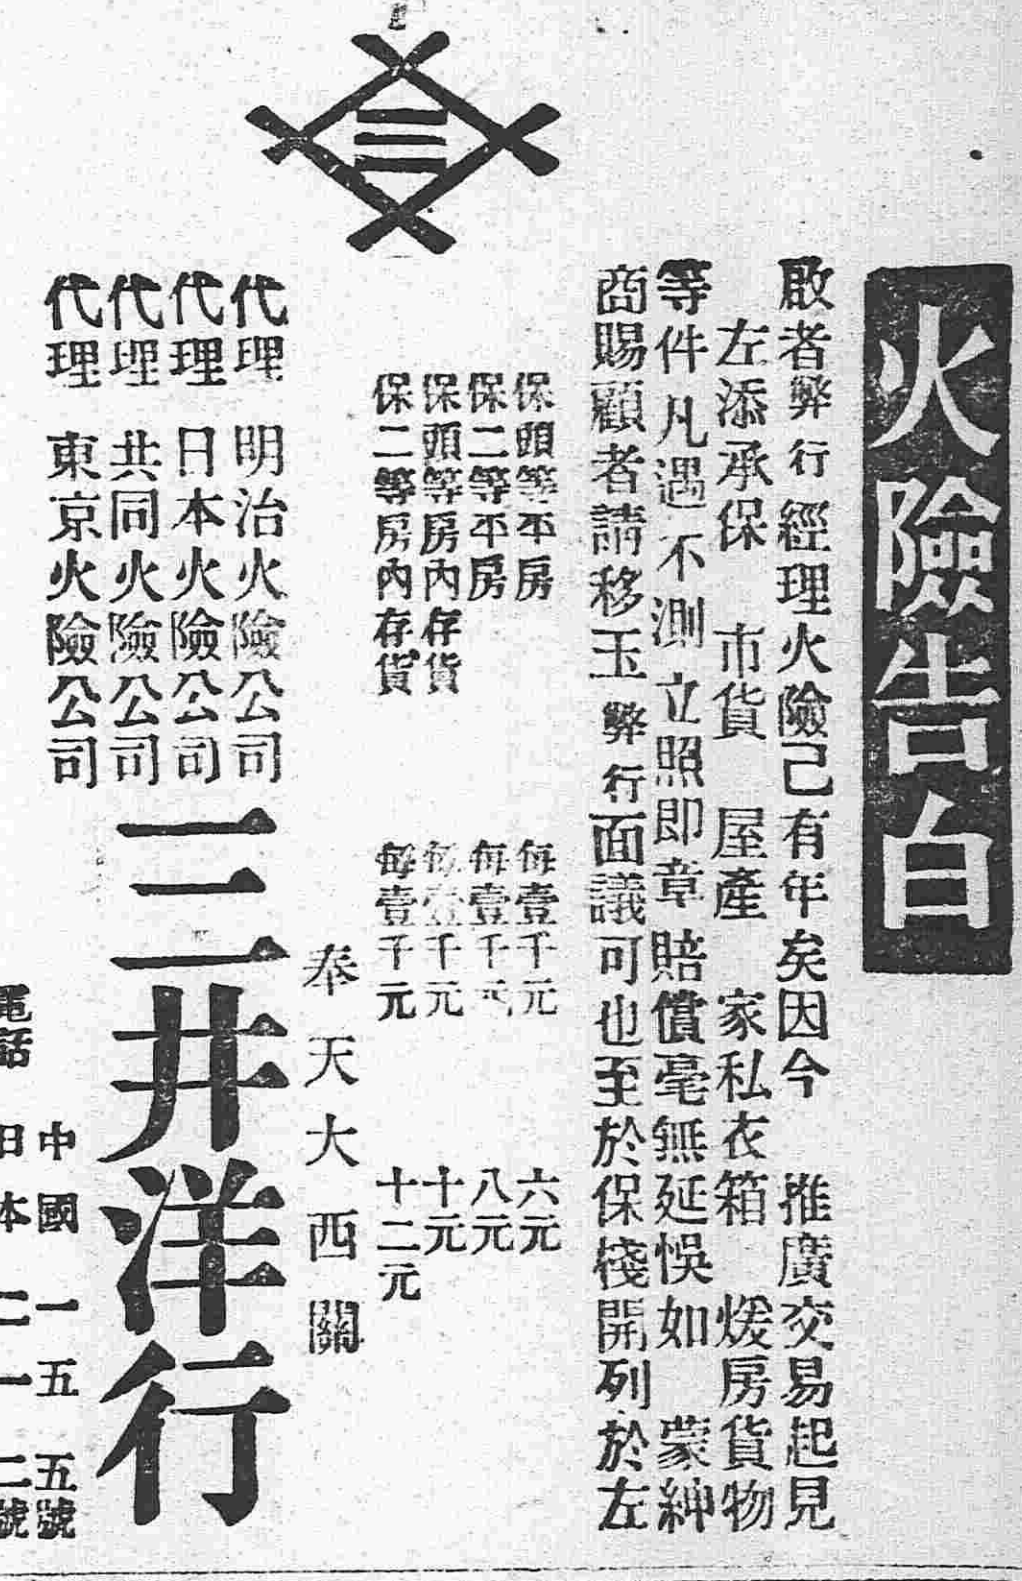 火險告白
啟者弊行經理火險己有年矣因今 推廣交易起見
左添承保 市貨 屋產 家私衣箱 煖房貨物
等件凡遇不測立照即章賠償毫無延悞如 蒙紳
商賜顧者請移玉弊行面議可也至於保棧開列於左
保頭等平房 每壹千元 六元
保二等平房 每壹千元 八元
保頭等房內存貨 每壹千元 十元
保二等房內存貨 每壹千元 十二元
奉天大西關
代理 明治火險公司
代理 日本火險公司
代理 共同火險公司
代理 東京火險公司
三井洋行
電話 中國 一五五號
日本 二一二號